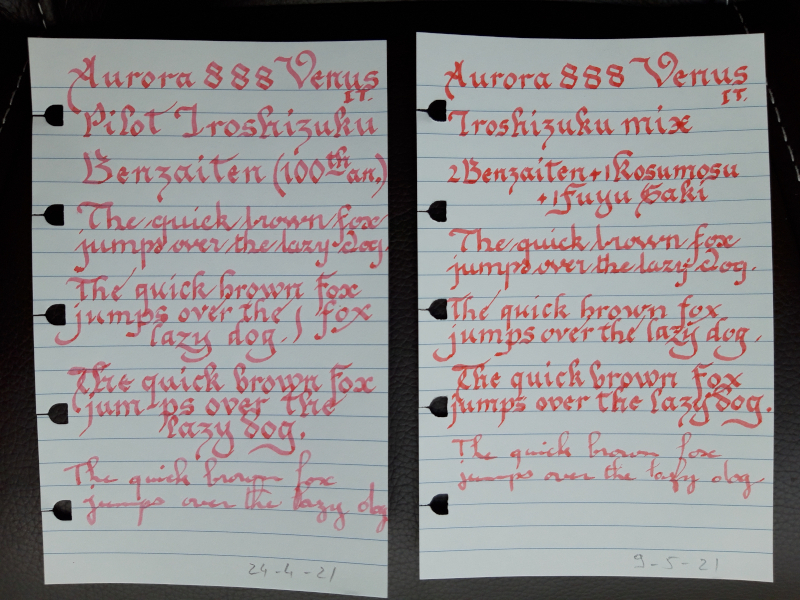 Aurora 888 Venus
IT.
Pilot Iroshizuku
Benzaiten (100th an.)
The quick brown fox
jumps over the lazy dog
The quick brown fox
jumps over the / fox
lazy dog.
The quick brown fox
jum-ps over the
lazy dog.
The quick brown fox
jumps over the lazy dog
24-4-21
Aurora 888 Venus
IT.
Iroshizuku mix
2 Benzaiten + 1 Kosumosu
+ 1 Fuyu Gaki
The quick brown fox
jumps over the lazy dog.
The quick brown fox
jumps over the lazy dog.
The quick brown fox
jumps over the lazy dog.
The quick brown fox
jumps over the lazy dog
9-5-21